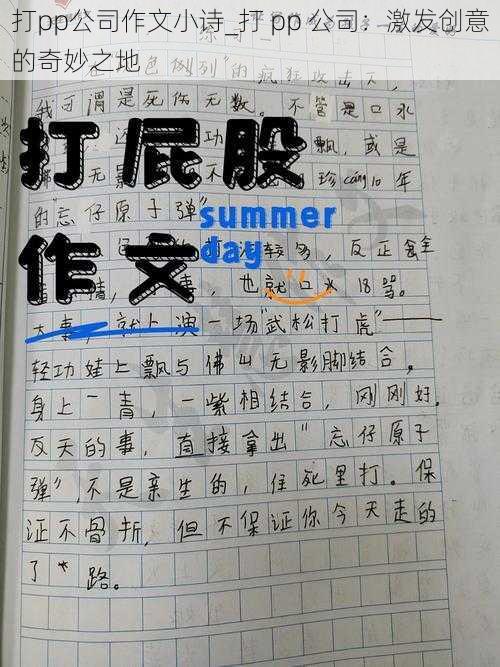 打pp公司作文小诗_打 pp 公司：激发创意
的奇妙之地
色例列”的疯狂攻击下,
我可谓是死伤无数。不管是口水
功 飘,或是
无 不 珍cáng10年
的“忘仔原子弹”
打屁股
作文
summer
day
较多,反正全
情, 事,也就口水18骂。
大事,就上演一场“武松打虎”——
轻功娃上飘与佛山无影脚结合,
身上一青,一紫相结合,刚刚好。
反天的事,直接拿出“忘仔原子
弹”,不是亲生的,往死里打。保
证不骨折,但不保证你今天走的
了*路。